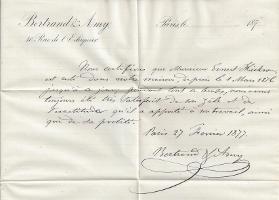 Bertrand & Amy
40 Rue de l'Echiquier
Paris le 187
Nous certifions que Monsieur Ernest
est dans notre maison depuis le 1 Mars 1876
jusqu'à ce jour nous
toujours été très satisfait de son zèle et de
l'exactitude qu'il a apporté à son travail, ainsi
que de sa probité.
Paris 27 Février 1877.
Bertrand & Amy